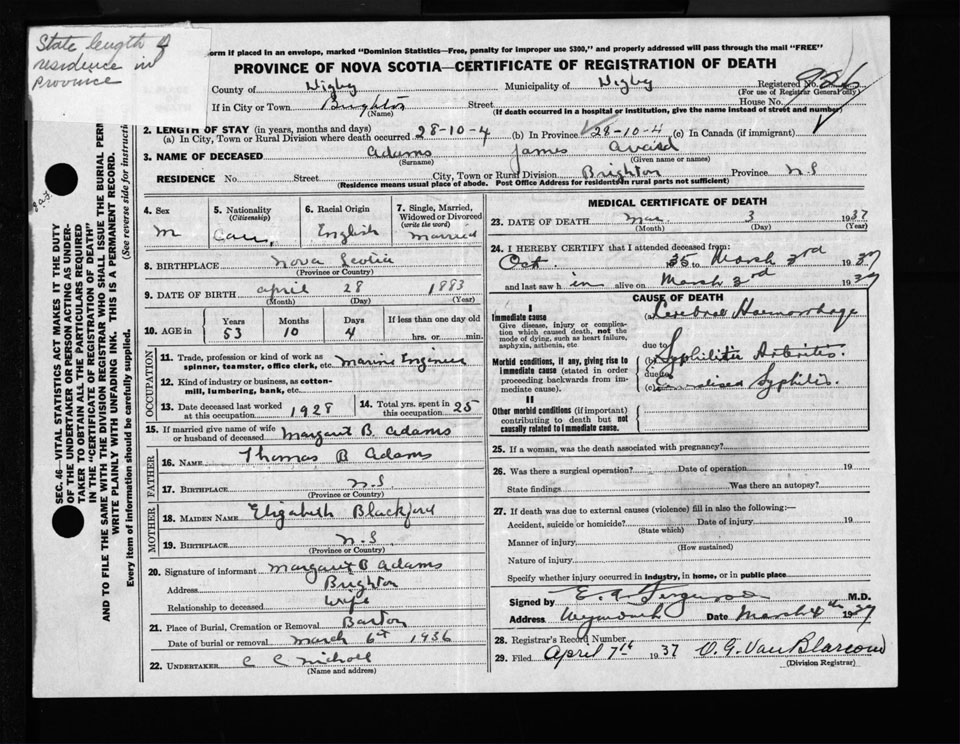 State length of
residence in
Province
orm if placed in an envelope, marked "Dominion Statistics—Free, penalty for improper use $300," and properly addressed will pass through the mail "FREE"
PROVINCE OF NOVA SCOTIA—CERTIFICATE OF REGISTRATION OF DEATH
County of Digby Municipality of Digby Registered No. 926
(For use of Registrar General only)
If in City or Town Brighton Street House No.
(Name) (If death occurred in a hospital or institution, give the name instead of street and number)
2. LENGTH OF STAY (in years, months and days)
(a) In City, Town or Rural Division where death occurred 28-10-4 (b) In Province 28-10-4 (c) In Canada (if immigrant)
3. NAME OF DECEASED Adams James
(Surname) (Given name or names)
RESIDENCE No. Street City, Town or Rural Division Brighton Province N.S
(Residence means usual place of abode. Post Office Address for residents in rural parts not sufficient)
4. Sex
M
5. Nationality
(Citizenship)
Can.
6. Racial Origin
English
7. Single, Married,
Widowed or Divorced
(write the word)
Married
8. BIRTHPLACE Nova Scotia
(Province or Country)
9. DATE OF BIRTH April 28 1883
(Month) (Day) (Year)
10. AGE in
Years Months Days If less than one day old
53 10 4 hrs. or min.
OCCUPATION
11. Trade, profession or kind of work as
spinner, teamster, office clerk, etc. Marine Engineer
12. Kind of industry or business, as cotton-
mill, lumbering, bank, etc.
13. Date deceased last worked
at this occupation 1928
14. Total yrs. spent in
this occupation 25
15. If married give name of wife
or husband of deceased Margaret B. Adams
FATHER
16. NAME Thomas B Adams
17. BIRTHPLACE N.S.
(Province or Country)
MOTHER
18. MAIDEN NAME Elizabeth Blackford
19. BIRTHPLACE N.S.
(Province or Country)
20. Signature of informant Margaret B Adams
Address Brighton
Relationship to deceased Wife
21. Place of Burial, Cremation or Removal Barton
Date of burial or removal March 6th 1936
22. UNDERTAKER C C Nicholl
(Name and address)
MEDICAL CERTIFICATE OF DEATH
23. DATE OF DEATH Mar. 3 1937
(Month) (Day) (Year)
24. I HEREBY CERTIFY that I attended deceased from:
Oct. 35 to March 3rd 1937
and last saw him alive on March 3rd 1937
CAUSE OF DEATH
I
Immediate cause
Give disease, injury or complica-
tion which caused death, not the
mode of dying, such as heart failure,
asphyxia, asthenia, etc.
(a) Cerebral Haemorrhage
due to
Morbid conditions, if any, giving rise to
immediate cause (stated in order
proceeding backwards from im-
mediate cause).
(b) Syphilitic Arteritis.
due to
(c) Syphilis.
II
Other morbid conditions (if important)
contributing to death but not
causally related to immediate cause.
25. If a woman, was the death associated with pregnancy?
26. Was there a surgical operation? Date of operation 19
State findings Was there an autopsy?
27. If death was due to external causes (violence) fill in also the following:—
Accident, suicide or homicide? Date of injury 19
(State which)
Manner of injury
(How sustained)
Nature of injury
Specify whether injury occurred in industry, in home, or in public place
Signed by E. A. Ferguson M.D.
Address Weymouth Date March 4th 1937
28. Registrar's Record Number
29. Filed April 7th 1937 O. G. Van Blarcom
(Division Registrar)
SEC. 46—VITAL STATISTICS ACT MAKES IT THE DUTY
OF THE UNDERTAKER OR PERSON ACTING AS UNDER-
TAKER TO OBTAIN ALL THE PARTICULARS REQUIRED
IN THE "CERTIFICATE OF REGISTRATION OF DEATH"
AND TO FILE THE SAME WITH THE DIVISION REGISTRAR WHO SHALL ISSUE THE BURIAL PERM
WRITE PLAINLY WITH UNFADING INK. THIS IS A PERMANENT RECORD.
Every item of information should be carefully supplied. (See reverse side for instructi